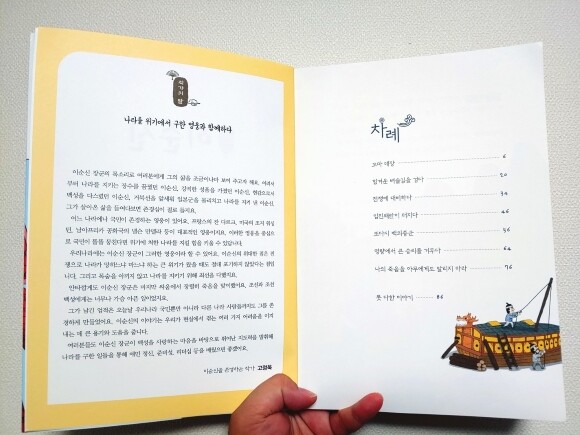 작가의 말
나라를 위기에서 구한 영웅과 함께하다
이순신 장군의 목소리로 여러분에게 그의 삶을 조금이나마 보여 주고자 해요. 어려서
부터 나라를 지키는 장수를 꿈꿨던 이순신, 강직한 성품을 가졌던 이순신, 현감으로서
백성을 다스렸던 이순신, 거북선을 앞세워 일본군을 물리치고 나라를 지켜 낸 이순신,
그가 살아온 삶을 들여다보면 존경심이 절로 들지요.
어느 나라에나 국민이 존경하는 영웅이 있어요. 프랑스의 잔 다르크, 미국의 조지 워싱
턴, 남아프리카 공화국의 넬슨 만델라 등이 대표적인 영웅이지요. 이러한 영웅을 중심으
로 국민이 똘똘 뭉친다면 위기에 처한 나라를 지킬 힘을 키울 수 있습니다.
우리나라에는 이순신 장군이 그러한 영웅이라 할 수 있어요. 이순신의 위대한 꿈은 전
쟁으로 나라가 망하느냐 마느냐 하는 큰 위기가 왔을 때도 절대 포기하지 않았다는 점입
니다. 그리고 목숨을 아끼지 않고 나라를 지키기 위해 최선을 다했지요.
안타깝게도 이순신 장군은 마지막 싸움에서 장렬히 죽음을 맞이했어요. 조선과 조선
백성에게는 너무나 가슴 아픈 일이었지요.
그가 남긴 업적은 오늘날 우리나라 국민뿐만 아니라 다른 나라 사람들까지도 그를 존
경하게 만들었어요. 이순신의 이야기는 우리가 현실에서 겪는 여러 가지 어려움을 이겨
내는 데 큰 용기와 도움을 줍니다.
여러분들도 이순신 장군이 백성을 사랑하는 마음을 바탕으로 뛰어난 지도력을 발휘해
나라를 구한 일들을 통해 애민 정신, 준비성, 리더십 등을 배웠으면 좋겠어요.
이순신을 존경하는 작가 고정욱
차례
꼬마 대장 6
힘겨운 벼슬길을 걷다 20
전쟁에 대비하다 34
임진왜란이 터지다 46
또다시 백의종군 56
명량에서 큰 승리를 거두다 64
나의 죽음을 아무에게도 알리지 마라 76
못다 한 이야기 86